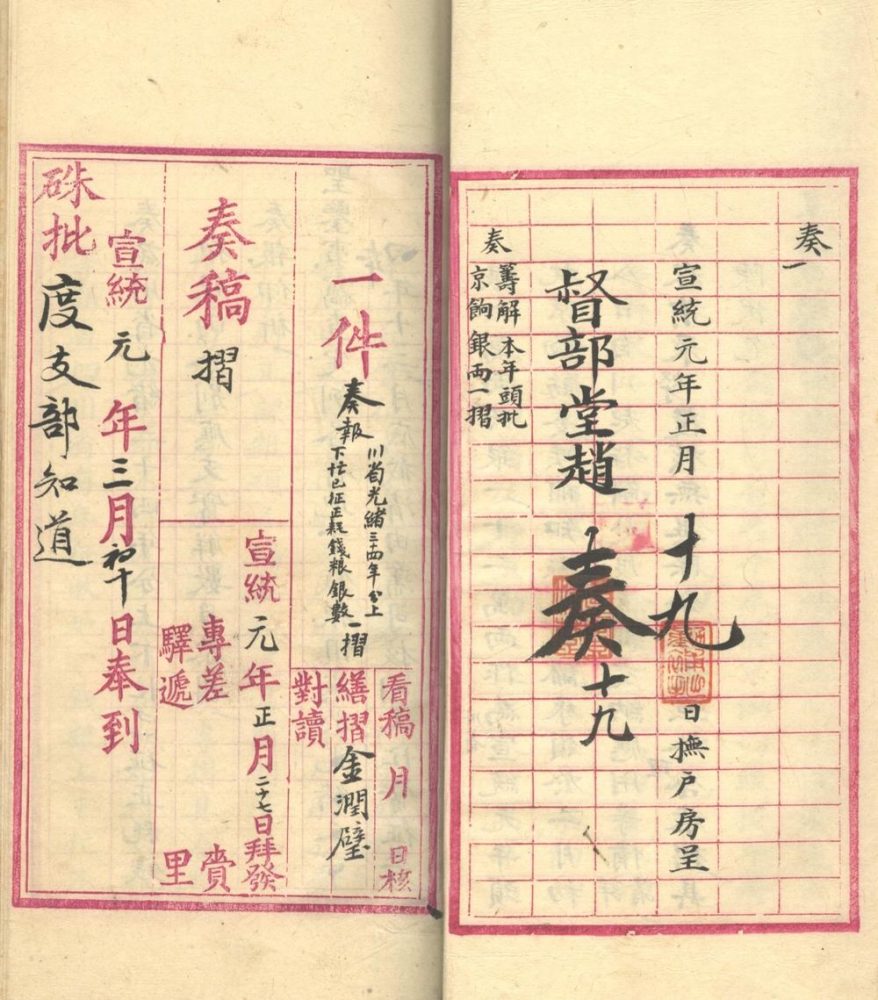 奏一
宣統元年正月十九日撫戶房呈
督部堂趙
奏十九
奏
籌解本年頭批
京餉銀兩一摺
看稿 月 日核
一件
奏報
川省光緒三十四年分上
下忙已征正耗錢粮銀數
一摺
繕摺金潤璧
對讀
奏稿摺
宣統元年正月二十七日拜發
專差 賫
驛遞 里
宣統元年三月初十日奉到
硃批度支部知道